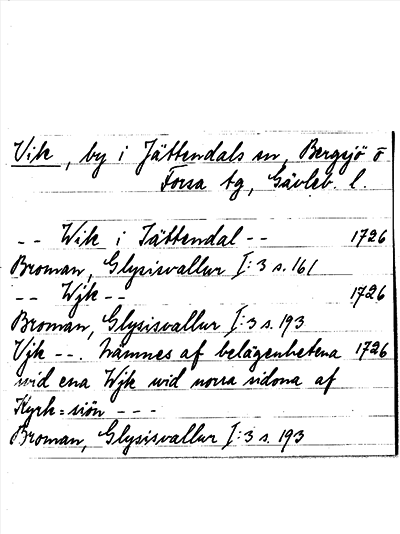 Vik, by i Jättendals sn, Bergsjö o
Forsa tg, Gävleb. l.
-- Wik i Jättendal -- 1726
Broman, Glysisvallur I:3 s. 161
-- Wjk -- 1726
Broman, Glysisvallur I:3 s. 193
Vjk --. nämnes af belägenhetena 1726
wid ena Wjk wid norra sidona af
Kyrk=siön ---
Broman, Glysisvallur I:3 s. 193